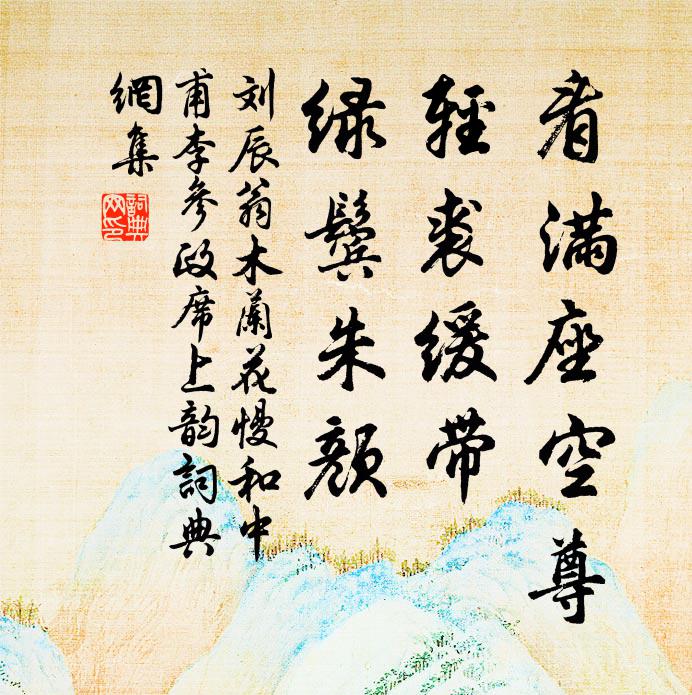 看满座空尊
轻裘缓带
绿鬓朱颜
刘辰翁木蘭花慢和中
甫李参政席上韵词典
網集
詞典网印